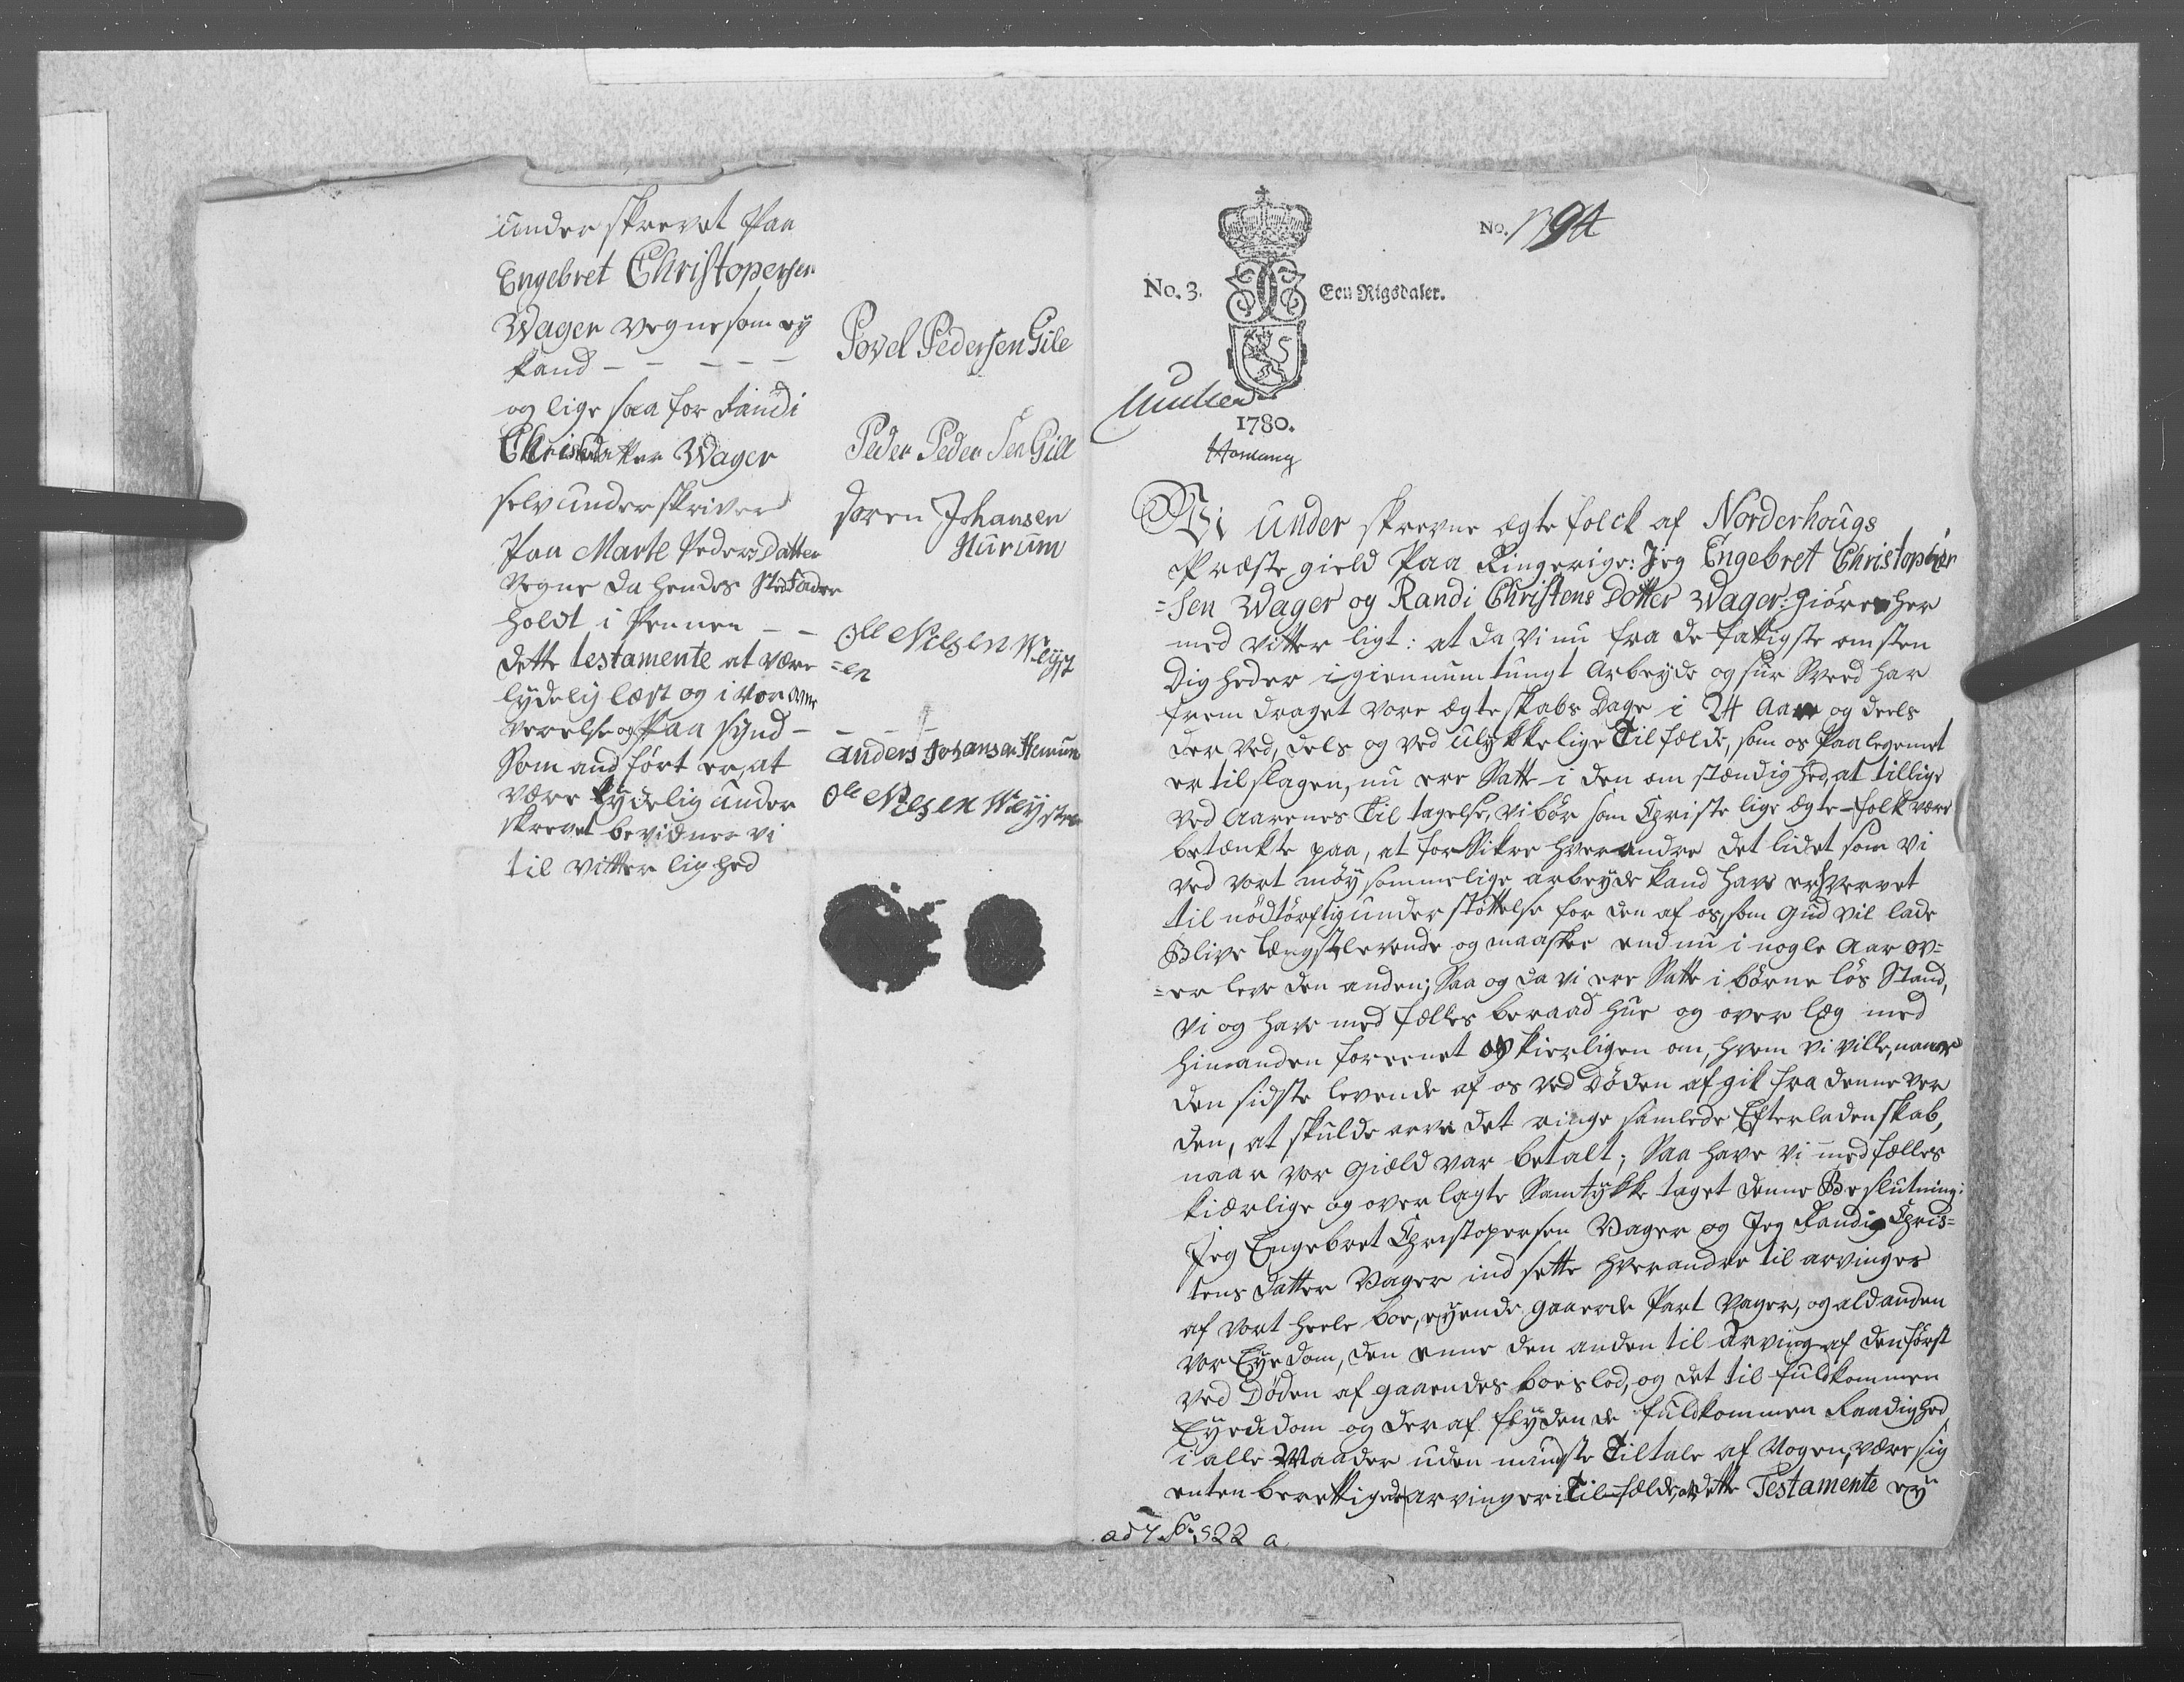 under skrevet Paa
Engebret Christopersen
Wager vegne som ey
kand - - - - -
og lige saa for Randi
Christensdatter Wager
selv underskriver
Paa Marte Peders Datter
vegne da hendes StedFader
holdt i Pennen - -
dette testamente at være
lydelig læst og i vor over
værelse og Paa synd -
Som andført er, at
være tydelig under
skrevet bevidner vi
til vitterlighed
Povel Pedersen Gile
Peder Peder Sen Gill
Soren Johansen
Hurum
Oll Nilsen Weyst
=en
Anders Johansen Hurum
Ole Nilsen Weysten
No. 1394
No. 3. Een Rigsdaler.
1780.
Vi under skrevne ægte folck af Norderhougs
Præste gield Paa Ringerige: Jeg Engebret Christopher
=sen Wager og Randi Christens Dotter Wager: Giøre her
med vitter ligt: at da vi nu fra de fattigste omsten
digheder igiennem tungt Arbeyde og sur Sveed har
frem draget vore ægteskabs Dage i 24 Aar og deels
der ved, dels og ved ulykkelige Tilfælde, som os Paa legemet
er tilslagen, nu ere Satte i den om stændighed, at tillige
ved Aarenes Til tagelse, vi bør som Christelige Ægte-folk være
betænkte paa, at forSikre hverandre det lidet som vi
ved vort møysommelige arbeyde kand have erhvervet
til nødtørftig under støttelse for den af os, som Gud vil lade
Blive længstlevende og maaskee end nu i nogle Aar ov=
=er leve den anden; Saa og da vi ere Satte i børne løs Stand,
vi og have med fælles beraad hue og over læg med
hinanden foreenet os kierligen om, hvem vi ville, naar
den sidste levende af os ved Døden afgik fra denne ver
den, at skulde arve det ringe samlede Efterladenskab,
naar vor Giæld var betalt; Saa have vi med fælles
kiærlige og over lagte Samtykke taget denne Beslutning:
Jeg Engebret Christopersen Vager og Jeg Randi Chris=
tens datter Vager ind sette hverandre til arvinger
af vort heele boe, eyende gaarde Part Vager, og ald anden
vor Eyedom, den enne den anden til Arving af den først
ved Døden af gaaendes boeslod, og det til fuldkommen
Eyendom og der af flydende fuldkommen Raadighed
i alle Maader uden mindste Tiltale af Nogen, være sig
enten berettigede arvinger i Tilfælde, at dette Testamente ey
ad 7 522 a